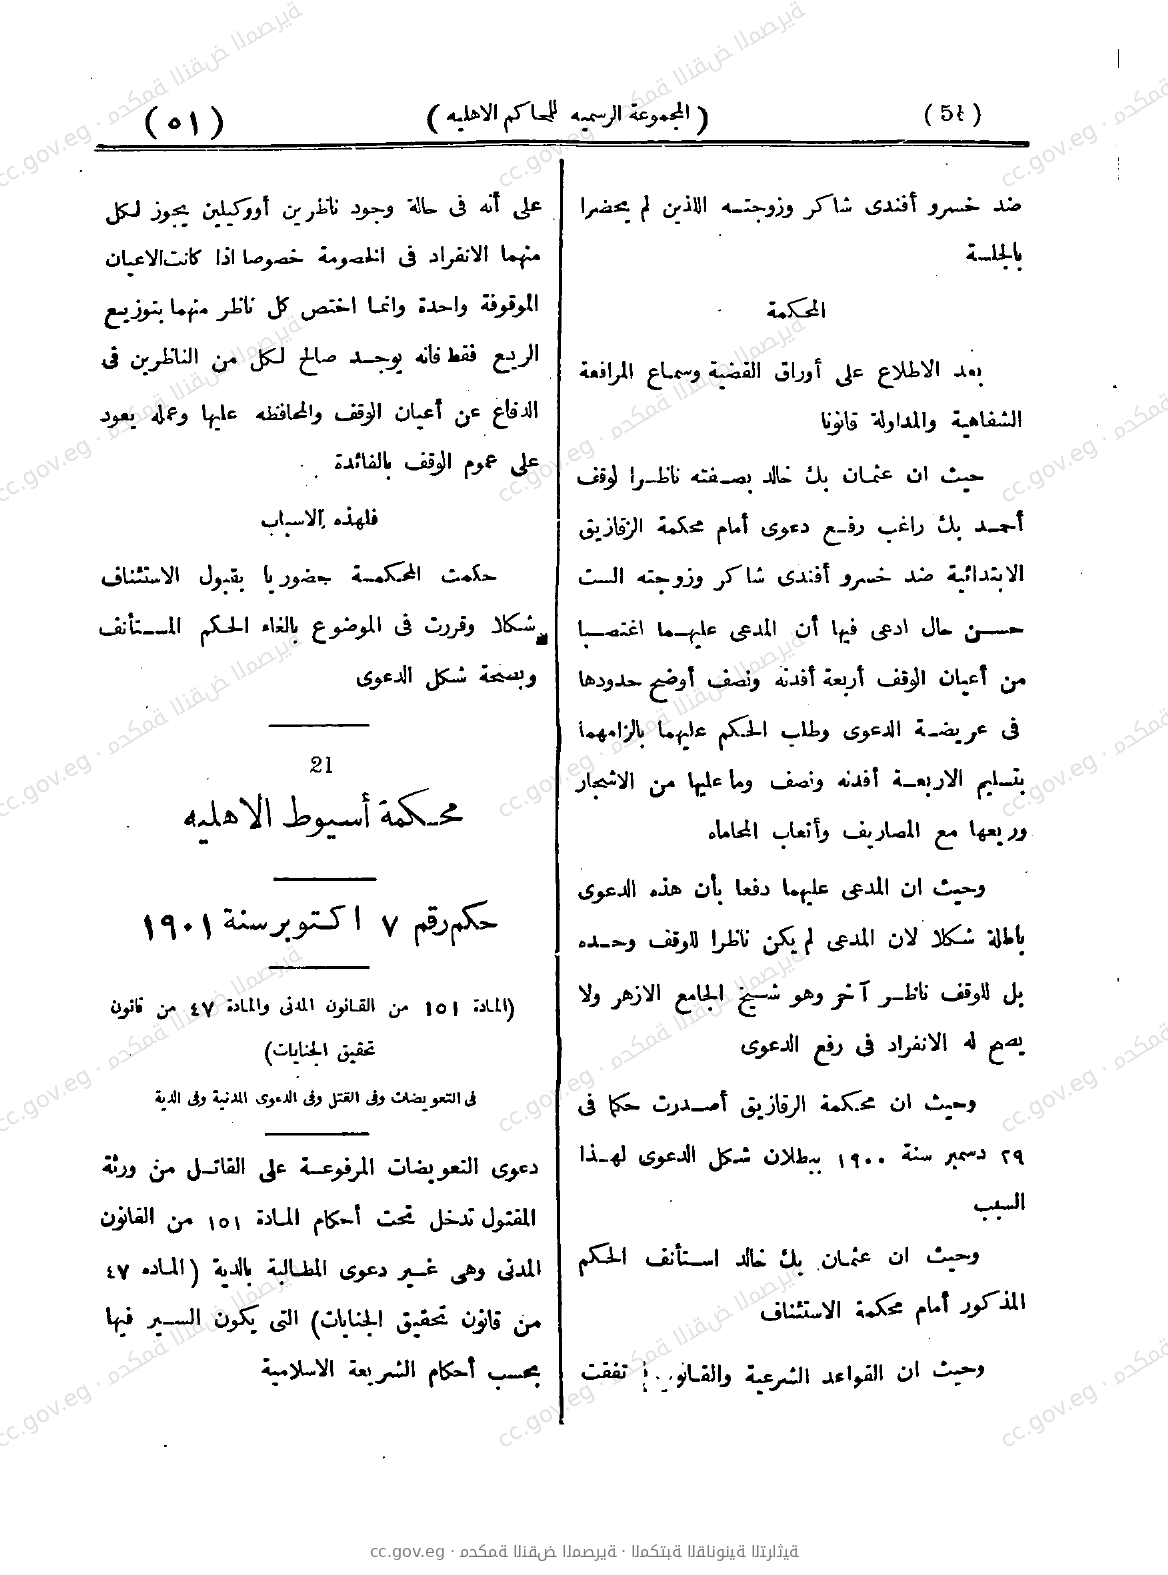 (51)
(المجموعة الرسميه للمحاكم الاهليه)
(٥١)
ضد خسرو أفندى شاكر وزوجته اللذين لم يحضرا
بالجلسة
المحكمة
بعد الاطلاع على أوراق القضية وسماع المرافعة
الشفاهية والمداولة قانونا
حيث ان عثمان بك خالد بصفته ناظرا لوقف
أحمد بك راغب رفع دعوى أمام محكمة الزقازيق
الابتدائية ضد خسرو أفندى شاكر وزوجته الست
حسن حال ادعى فيها أن المدعى عليهما اغتصبا
من أعيان الوقف أربعة أفدنه ونصف أوضح حدودها
فى عريضة الدعوى وطلب الحكم عليهما بالزامهما
بتسليم الاربعة أفدنه ونصف وما عليها من الاشجار
وريعها مع المصاريف وأتعاب المحاماه
وحيث ان المدعى عليهما دفعا بأن هذه الدعوى
باطلة شكلا لان المدعى لم يكن ناظرا للوقف وحده
بل للوقف ناظر آخر وهو شيخ الجامع الازهر ولا
يصح له الانفراد فى رفع الدعوى
وحيث ان محكمة الزقازيق أصدرت حكما فى
٢٩ دسمبر سنة ١٩٠٠ ببطلان شكل الدعوى لهذا
السبب
وحيث ان عثمان بك خالد استأنف الحكم
المذكور أمام محكمة الاستئناف
وحيث ان القواعد الشرعية تفقت
على أنه فى حالة وجود ناظرين أووكيلين يجوز لكل
منهما الانفراد فى الخصومة خصوصا اذا كانت الاعيان
الموقوفة واحدة وانما اختص كل ناظر منهما بتوزيع
الريع فقط فانه يوجد صالح لكل من الناظرين فى
الدفاع عن أعيان الوقف والمحافظه عليها وعمله يعود
على عموم الوقف بالفائدة
فلهذه الاسباب
حكمت المحكمة حضوريا بقبول الاستئناف
شكلا وقررت فى الموضوع بالغاء الحكم المستأنف
وبصحة شكل الدعوى
21
محكمة أسيوط الاهليه
حكم رقم ٧ اكتوبر سنة ١٩٠١
(المادة ١٥١ من القانون المدنى والمادة ٤٧ من قانون
تحقيق الجنايات)
فى التعويضات وفى القتل وفى الدعوى المدنية وفى الدية
دعوى التعويضات المرفوعة على القاتل من ورثة
المقتول تدخل تحت أحكام المادة ١٥١ من القانون
المدنى وهى غير دعوى المطالبة بالدية (الماده ٤٧
من قانون تحقيق الجنايات) التى يكون السير فيها
بحسب أحكام الشريعة الاسلامية
cc.gov.eg · محكمة النقض المصرية · المكتبة القانونية التراثية